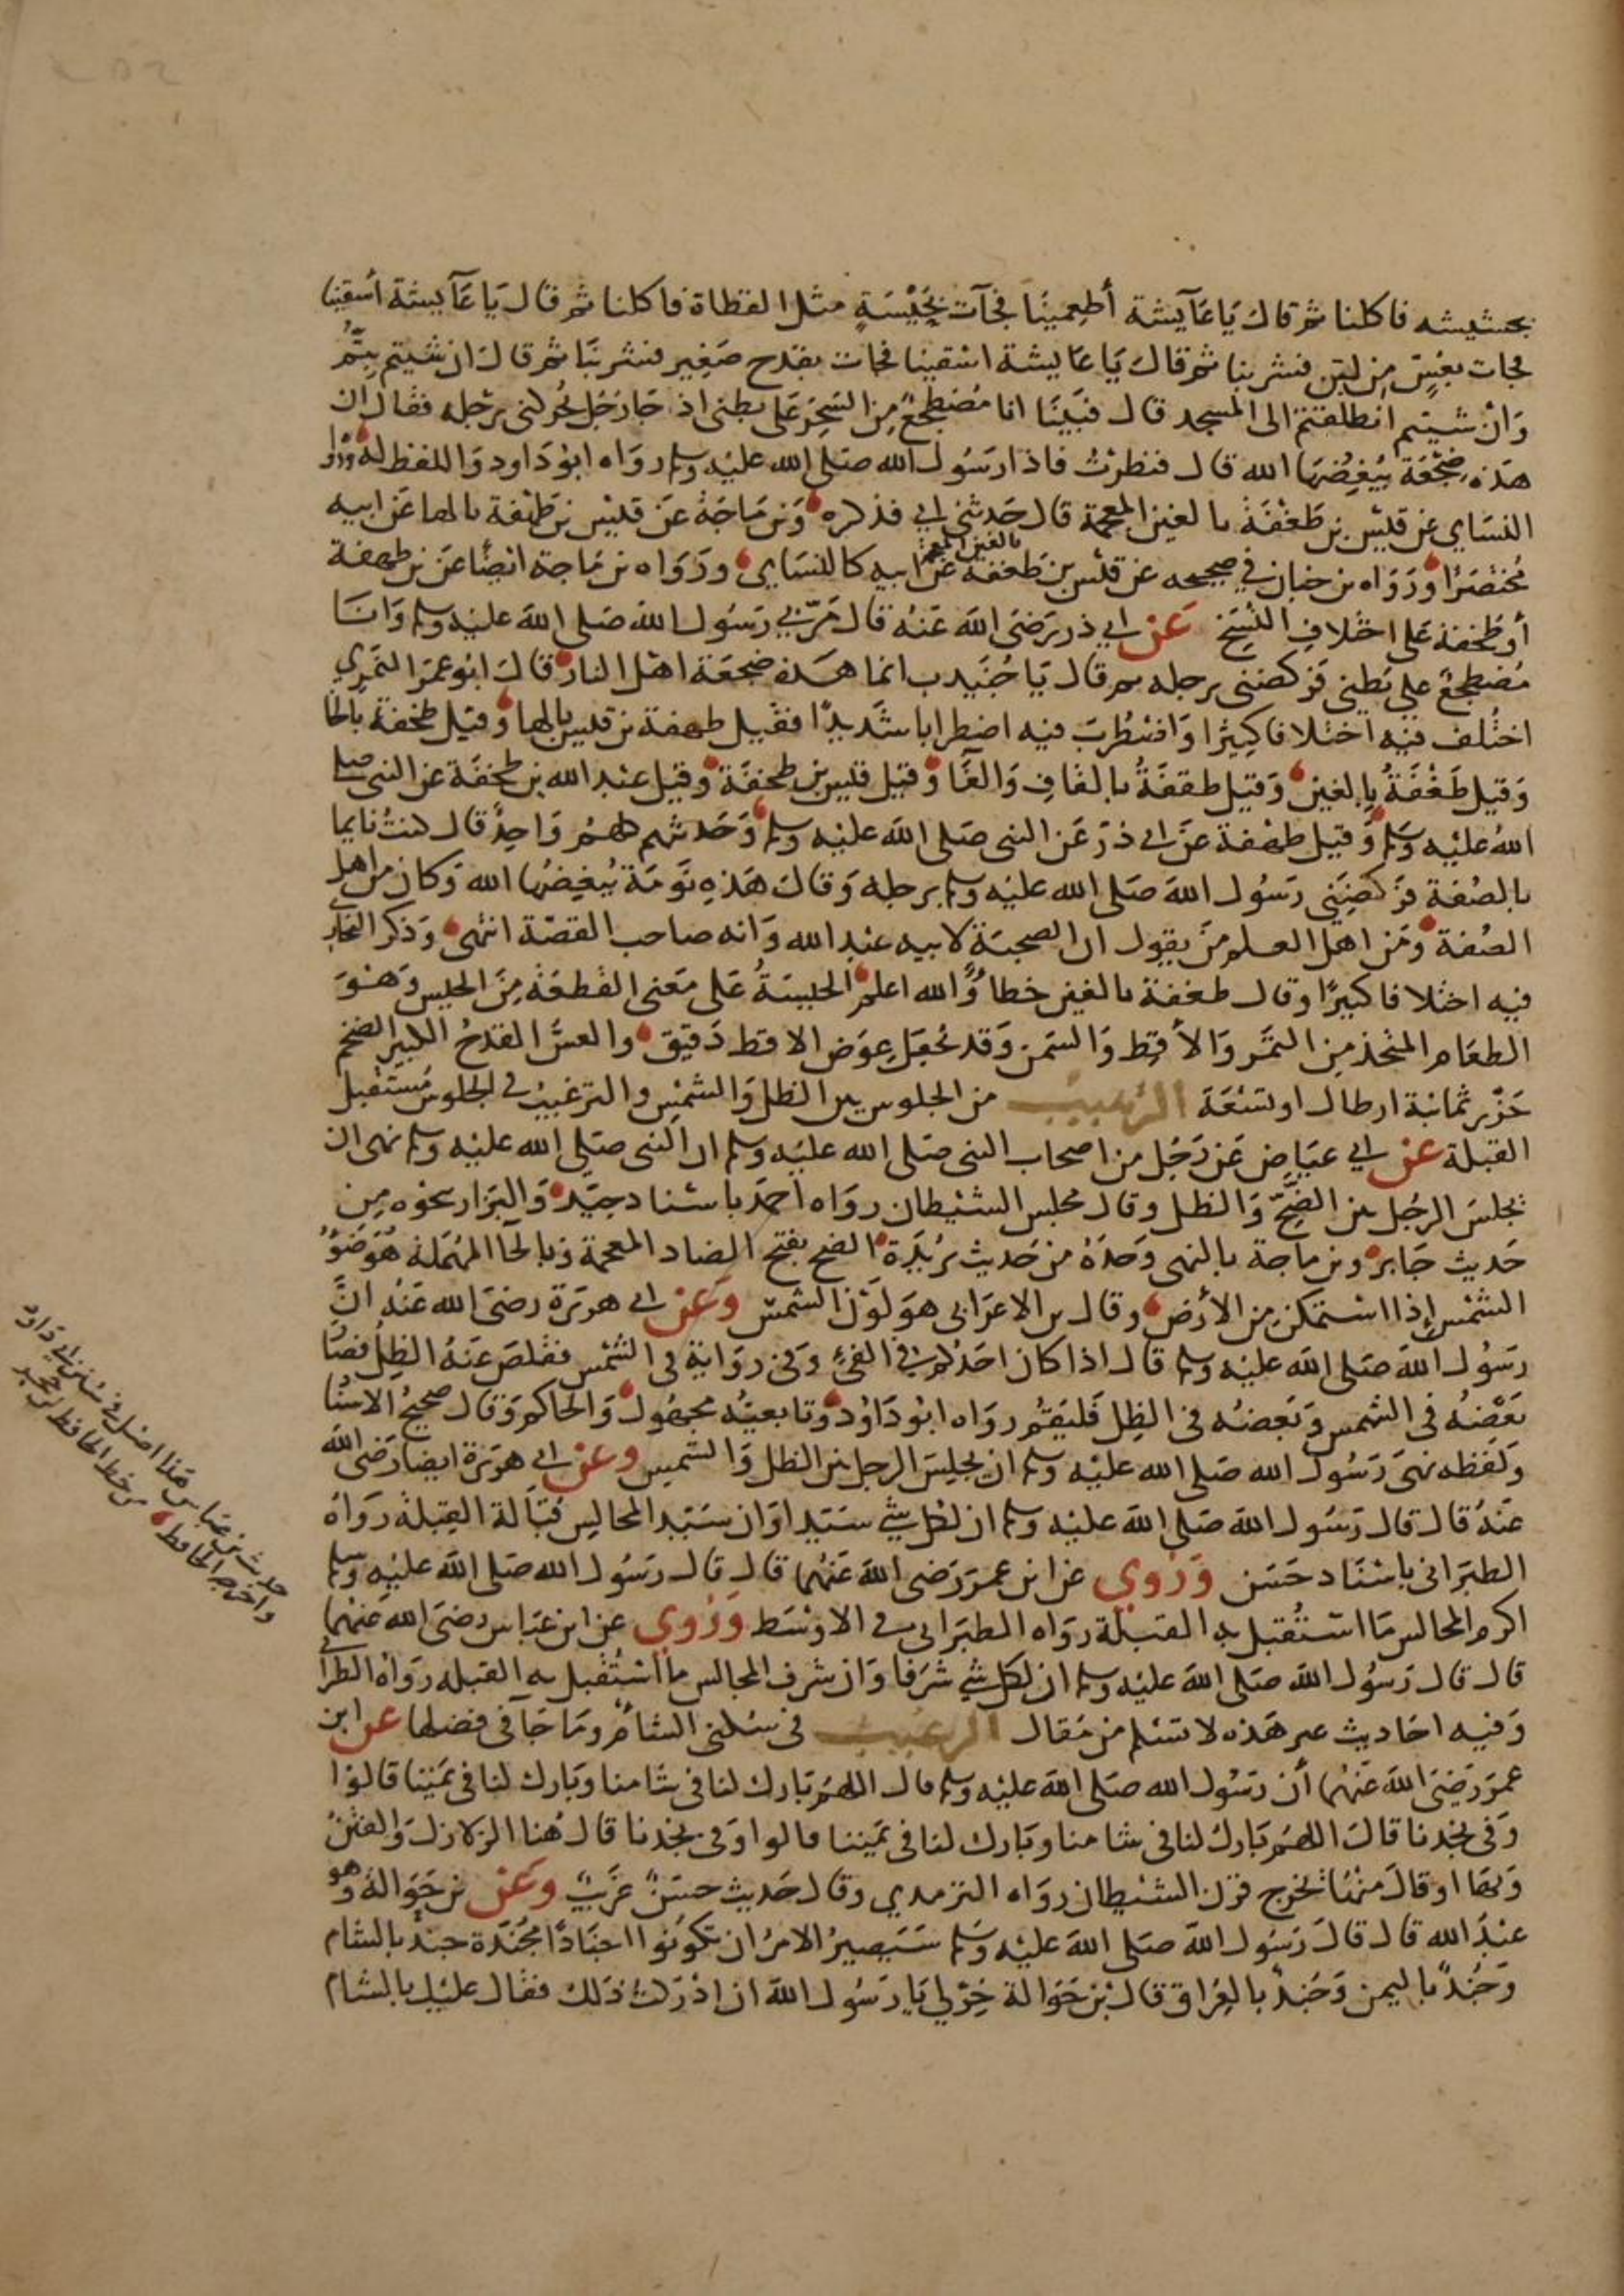 بحشيشه فاكلنا ثم قال يا عآيشة أطعمينا فجآت بحَيْسَةٍ مثل القطاة فاكلنا ثم قال يا عآيشة أسقينا
فجات بعُسٍّ من لبن فشربنا ثم قال يا عايشة اسقينا فجات بقدح صغير فشربنا ثم قال ان شيتم بتم
وان شيتم انطلقتم الى المسجد قال فبينا انا مضطجع من السحر على بطنى اذ جا رجل يحركنى برجله فقال ان
هذه ضجعة يبغضها الله قال فنظرت فاذا رسول الله صلى الله عليه وسلم رواه ابو داود واللفظ له ورواه
النساي عن قيس بن طغفة بالغين المعجمة قال حدثنى ابي فذكره وبن ماجة عن قيس بن طهفة بالها عن ابيه
مختصرا ورواه بن حبان في صحيحه عن قيس بن طغفة بالغين المعجمة عن ابيه كالنساي ورواه بن ماجة ايضا عن بن طهفة
أو طخفة على اختلاف النسخ عن ابي ذر رضى الله عنه قال مر بي رسول الله صلى الله عليه وسلم وانا
مضطجع على بطنى فركضنى برجله ثم قال يا جنيدب انما هذه ضجعة اهل النار قال ابو عمر النمري
اختُلف فيه اختلافا كثيرا واضطُرب فيه اضطرابا شديدا فقيل طهفة بن قيس بالها وقيل طخفة بالخا
وقيل طغفة بالغين وقيل طقفة بالقاف والفا وقيل قيس بن طخفة وقيل عبد الله بن طخفة عن النبى صلى
الله عليه وسلم وقيل طهفة عن ابى ذر عن النبى صلى الله عليه وسلم وحديثهم كلهم واحد قال كنت نايما
بالصفة فركضنى رسول الله صلى الله عليه وسلم برجله وقال هذه نومة يُبغضها الله وكان من اهل
الصفة ومن اهل العلم من يقول ان الصحبة لابيه عبد الله وانه صاحب القصة انتهى وذكر البخاري
فيه اختلافا كبيرا وقال طغفة بالغين خطأ والله اعلم الحيسة على معنى القطعة من الحيس وهو
الطعام المتخذ من التمر والأقط والسمن وقد يجعل عوض الاقط دقيق والعس القدح الكبير الضخم
حزر ثمانية ارطال او تسعة الترهيب من الجلوس بين الظل والشمس والترغيب في الجلوس مستقبل
القبلة عن ابي عياض عن رجل من اصحاب النبى صلى الله عليه وسلم ان النبى صلى الله عليه وسلم نهى ان
يجلس الرجل بين الضِّحّ والظل وقال مجلس الشيطان رواه احمد باسناد جيد والبزار بنحوه من
حديث جابر وبن ماجة بالنهى وحده من حديث بريدة الضح بفتح الضاد المعجمة وبالحآ المهملة هو ضوُ
الشمس إذا استمكن من الأرض وقال بن الاعرابى هو لون الشمس وعن ابى هريرة رضى الله عنه انَّ
رسول الله صلى الله عليه وسلم قال اذا كان احدكم في الفئ وفى رواية في الشمس فقلص عنه الظل فصار
بعضُه فى الشمس وبعضه فى الظل فليقم رواه ابو داود وتابعيُّه مجهول والحاكم وقال صحيح الاسناد
ولفظه نهى رسول الله صلى الله عليه وسلم ان يجلس الرجل بين الظل والشمس وعن ابي هريرة ايضا رضى الله
عنه قال قال رسول الله صلى الله عليه وسلم ان لكل شي سيدا وان سيد المجالس قُبالة القبلة رواه
الطبرانى باسناد حسن وروي عن ابن عمر رضى الله عنهما قال قال رسول الله صلى الله عليه وسلم
اكرم المجالس ما استُقبل به القبلة رواه الطبرانى في الاوسط وروي عن ابن عباس رضى الله عنهما
قال قال رسول الله صلى الله عليه وسلم ان لكل شي شرفا وان شرف المجالس ما استُقبل به القبله رواه الطبرانى
وفيه احاديث غير هذه لا تسلم من مقال الترغيب فى سكنى الشام وما جآ فى فضلها عن ابن
عمر رضى الله عنهما أن رسول الله صلى الله عليه وسلم قال اللهم بارك لنا فى شامنا وبارك لنا فى يمننا قالوا
وفى نجدنا قال اللهم بارك لنا فى شامنا وبارك لنا فى يمننا قالوا وفى نجدنا قال هُنا الزلازل والفتن
وبها او قال منها يخرج قرن الشيطان رواه الترمدي وقال حديث حسنٌ غريبٌ وعن بن حوالة وهو
عبد الله قال قال رسول الله صلى الله عليه وسلم سيصير الامر ان تكونوا اجنادا مجندة جند بالشام
وجُندٌ باليمن وجُند بالعراق قال بن حوالة خِرْ لي يا رسول الله ان ادركت ذلك فقال عليك بالشام
حديث بن عباس هذا اصله في سنن ابي داود